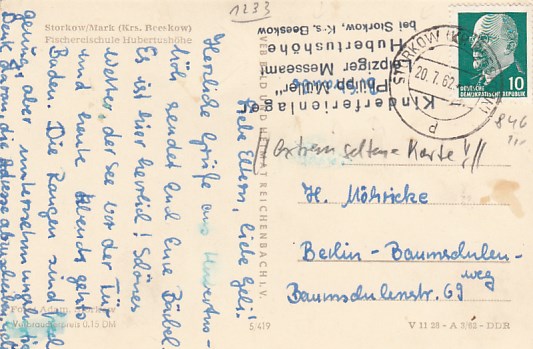 1233
Storkow/Mark (Krs. Beeskow)
Fischereischule Hubertushöhe
Liebe Eltern, liebe Geli!
Herzliche Grüße aus Hubertus-
höh sendet Euch Eure Bärbel.
Es ist hier herrlich! Schönes
Wetter, der See vor der Tür
und heute Abend geht
Baden. Die Rangen sind
genug, aber
Denk daran, die Adresse
Foto: Adam, Storkow
Verbraucherpreis 0,15 DM
VEB BILD UND HEIMAT REICHENBACH I. V.
5/419
Kinderferienlager
"Philipp Müller"
Leipziger Messeamt
Hubertushöhe
bei Storkow, Krs. Beeskow
STORKOW (
20.7.62
10
DEUTSCHE
DEMOKRATISCHE REPUBLIK
846
extrem seltene Karte!!!
H. Möhricke
Berlin-Baumschulen-
weg
Baumschulenstr. 69
V 11 28 - A 3/62 - DDR